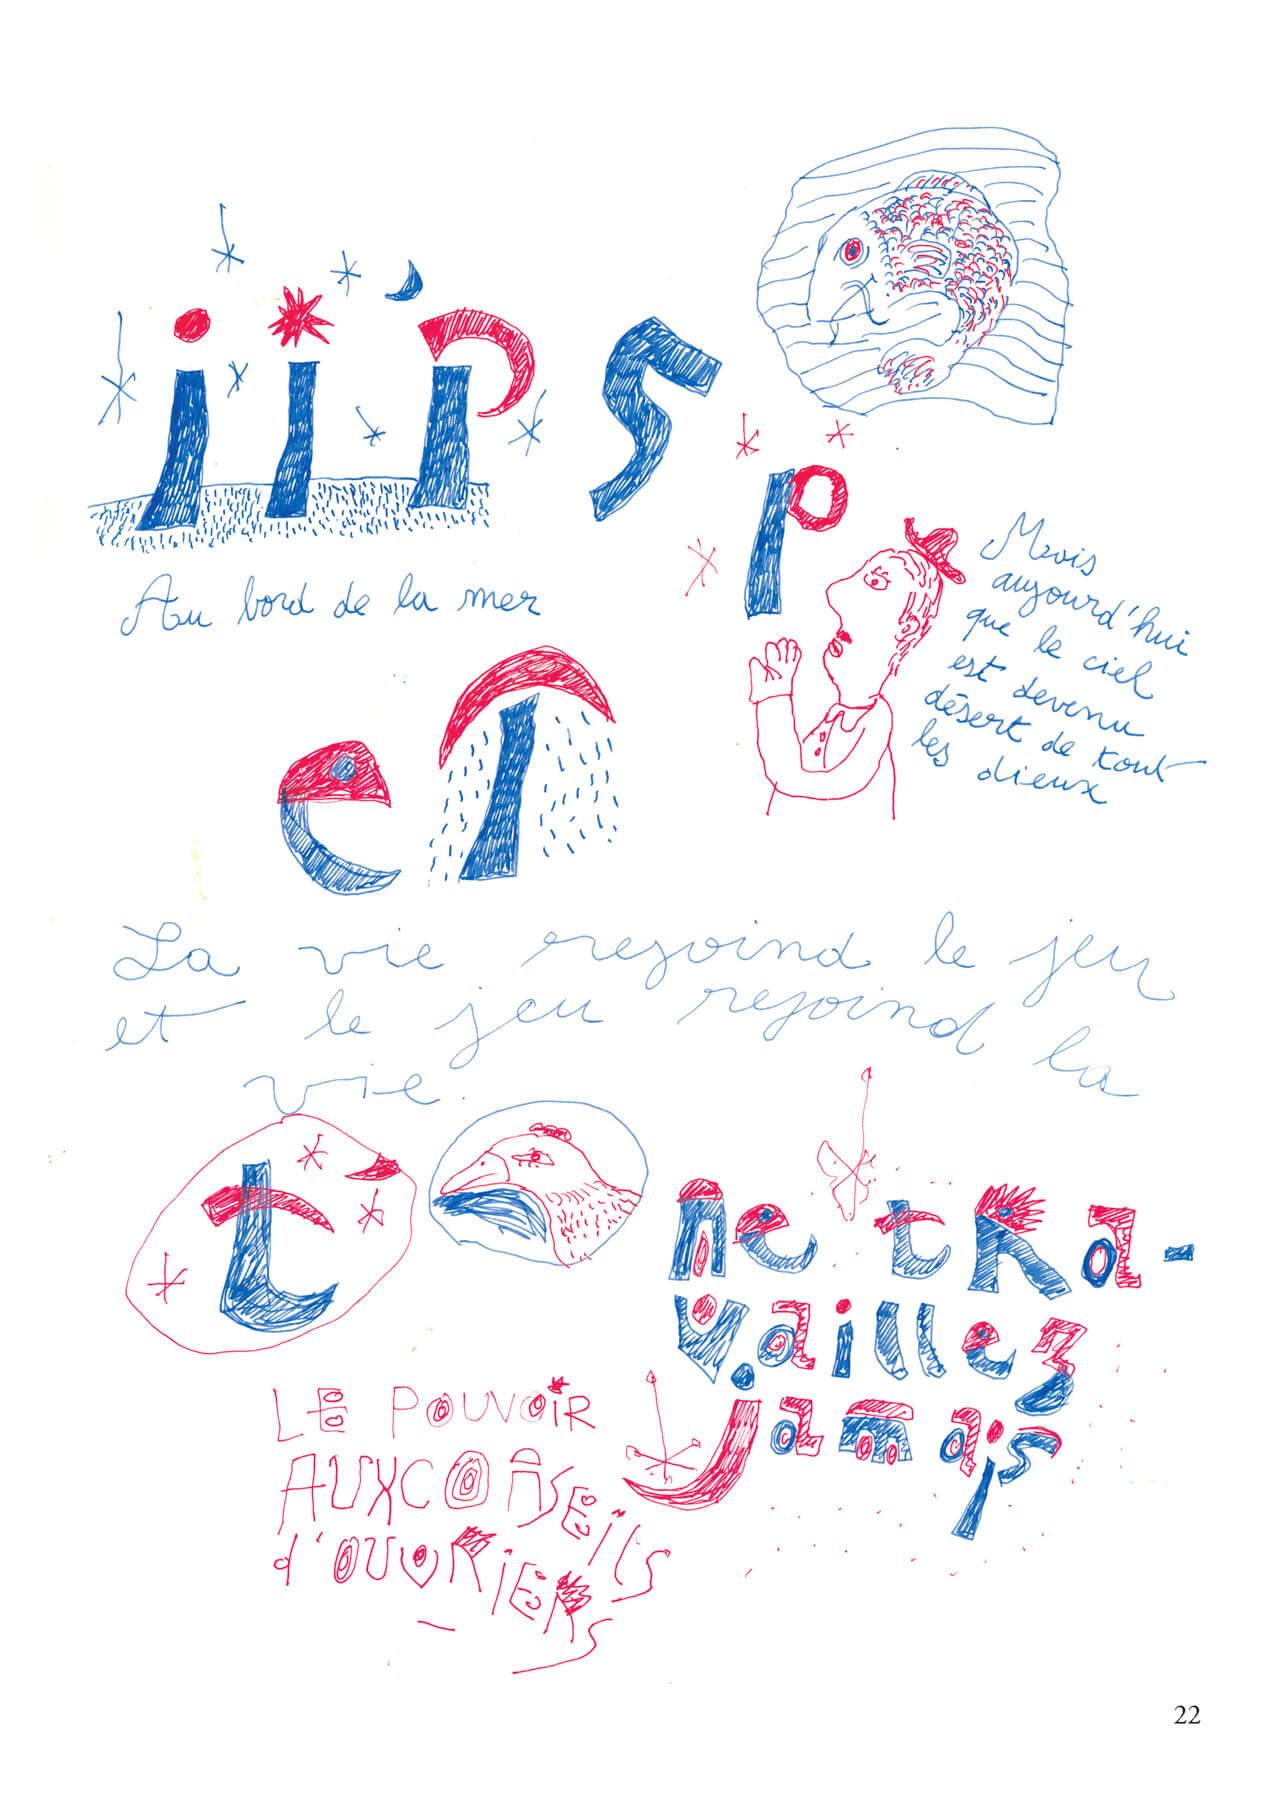 iïrs
Au bord de la mer
r
Mais
aujourd'hui
que le ciel
est devenu
désert de tout
les dieux
er
La vie rejoind le jeu
et le jeu rejoind la
vie.
t
ne tRa-
vaillez
jamais
LE POUVOIR
AUX CONSEILS
d'OUVRIERS
22